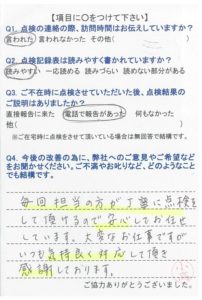 【項目に○をつけて下さい】
Q1. 点検の連絡の際、訪問時間はお伝えしていますか?
言われた 言われなかった その他( )
Q2. 点検記録表は読みやすく書かれていますか?
読みやすい 一応読める 読みづらい 読めない部分がある
Q3. ご不在時に点検させていただいた後、点検結果の
ご説明はありましたか?
直接報告に来た 電話で報告があった 何もなかった
他( )
※ご在宅時に点検をさせて頂いている場合は無回答で結構です。
Q4. 今後の改善の為に、弊社へのご意見やご希望などを
お聞かせください。ご不満やお叱りなど、どのようなことで
も結構です。
毎回担当の方が丁寧に点検を
して頂けるので安心してお任せ
しています。大変なお仕事ですが
いつも気持良く対応して頂き
感謝しております。
ご協力ありがとうございました。